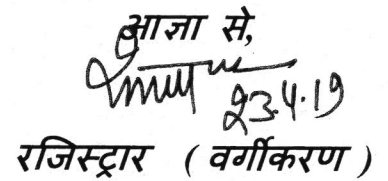 आज्ञा से,
23.4.19
रजिस्ट्रार ( वर्गीकरण )